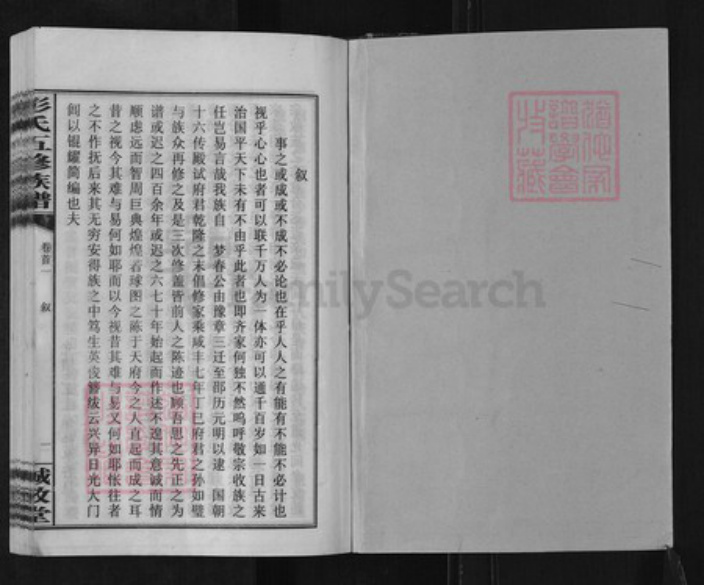 叙
事之或成或不成不必论也在乎人人之有能有不能不必计也
视乎心心也者可以联千万人为一体亦可以通千百岁如一日古来
治国平天下未有不由乎此者也即齐家何独不然呜呼敬宗收族之
任岂易言哉我族自 梦春公由豫章三迁至邵历元明以逮 国朝
十六传殿试府君乾隆之末倡修家乘咸丰七年丁巳府君之孙如璧
与族众再修之及是三次修盖皆前人之陈迹也顾吾思之先正之为
谱或迟之四百余年或迟之六七十年始起而作述不逸其意诚而情
顺虑远而智周巨典煌煌若球图之陈于天府今之人直起而成之耳
昔之视今其难与易何如耶而以今视昔其难与易又何如耶怅往者
之不作抚后来其无穷安得族之中笃生英俊簪绂云兴异日光大门
闾以锟耀简编也夫
彭氏五修族谱
卷首一
叙
一
诚敬堂
FamilySearch